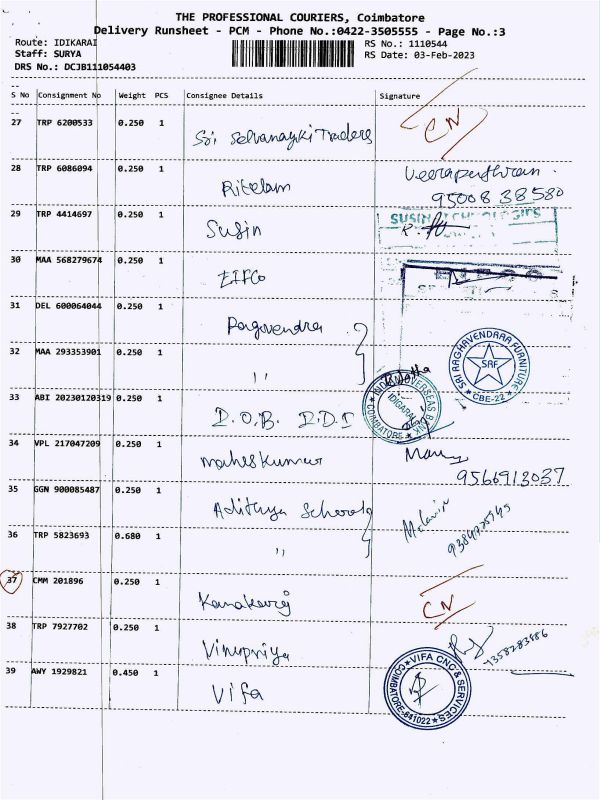 THE PROFESSIONAL COURIERS, Coimbatore
Delivery Runsheet - PCM - Phone No.:0422-3505555 - Page No.:3
Route: IDIKARAI
Staff: SURYA
DRS No.: DCJB111054403
RS No.: 1110544
RS Date: 03-Feb-2023
S No Consignment No Weight PCS Consignee Details Signature
27 TRP 6200533 0.250 1 Sri Selvanayki Traders CN
28 TRP 6086094 0.250 1 Ritelam
9500838580
29 TRP 4414697 0.250 1 Susin
SUSIN TECHNOLOGIES
30 MAA 568279674 0.250 1 EIFCO
31 DEL 600064044 0.250 1 Ragavendra
32 MAA 293353901 0.250 1 ,,
SRI RAGHAVENDRAA FURNITURE
SRF
CBE-22
33 ABI 20230120319 0.250 1 I.O.B. I.D.I
INDIAN OVERSEAS BANK
IDIGARAI
COIMBATORE
34 VPL 217047209 0.250 1 maheskumar
9566913037
35 GGN 900085487 0.250 1 Adithya School
36 TRP 5823693 0.680 1 ,,
37 CMM 201896 0.250 1 Kanakaraj CN
38 TRP 7927702 0.250 1 Vinupriya
39 AWY 1929821 0.450 1 Vifa
VIFA CNC & SERVICES
COIMBATORE-641022